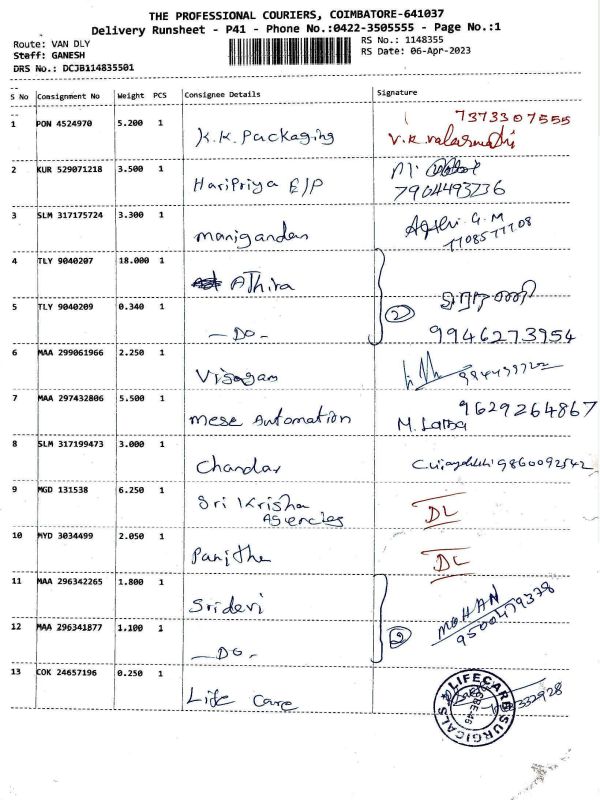 THE PROFESSIONAL COURIERS, COIMBATORE-641037
Delivery Runsheet - P41 - Phone No.:0422-3505555 - Page No.:1
Route: VAN DLY
RS No.: 1148355
Staff: GANESH
RS Date: 06-Apr-2023
DRS No.: DCJB114835501
S No Consignment No Weight PCS Consignee Details Signature
1 PON 4524970 5.200 1 K.K. Packaging 7373307555
V.K. Valarmathi
2 KUR 529071218 3.500 1 Haripriya E/P M.
7904493236
3 SLM 317175724 3.300 1 Manigandan G.M
7708577708
4 TLY 9040207 18.000 1 Athira
5 TLY 9040209 0.340 1 - Do - 2 9946273954
6 MAA 299061966 2.250 1 Visagam
7 MAA 297432806 5.500 1 Mese Automation M. Latha 9629264867
8 SLM 317199473 3.000 1 Chandar 9860092542
9 MGD 131538 6.250 1 Sri Krisha
Agencies DL
10 MYD 3034499 2.050 1 DL
11 MAA 296342265 1.800 1 Sridevi MOHAN
9500479378
12 MAA 296341877 1.100 1 - Do - 2
13 COK 24657196 0.250 1 Life Care
LIFECARE SURGICALS
CBE-46